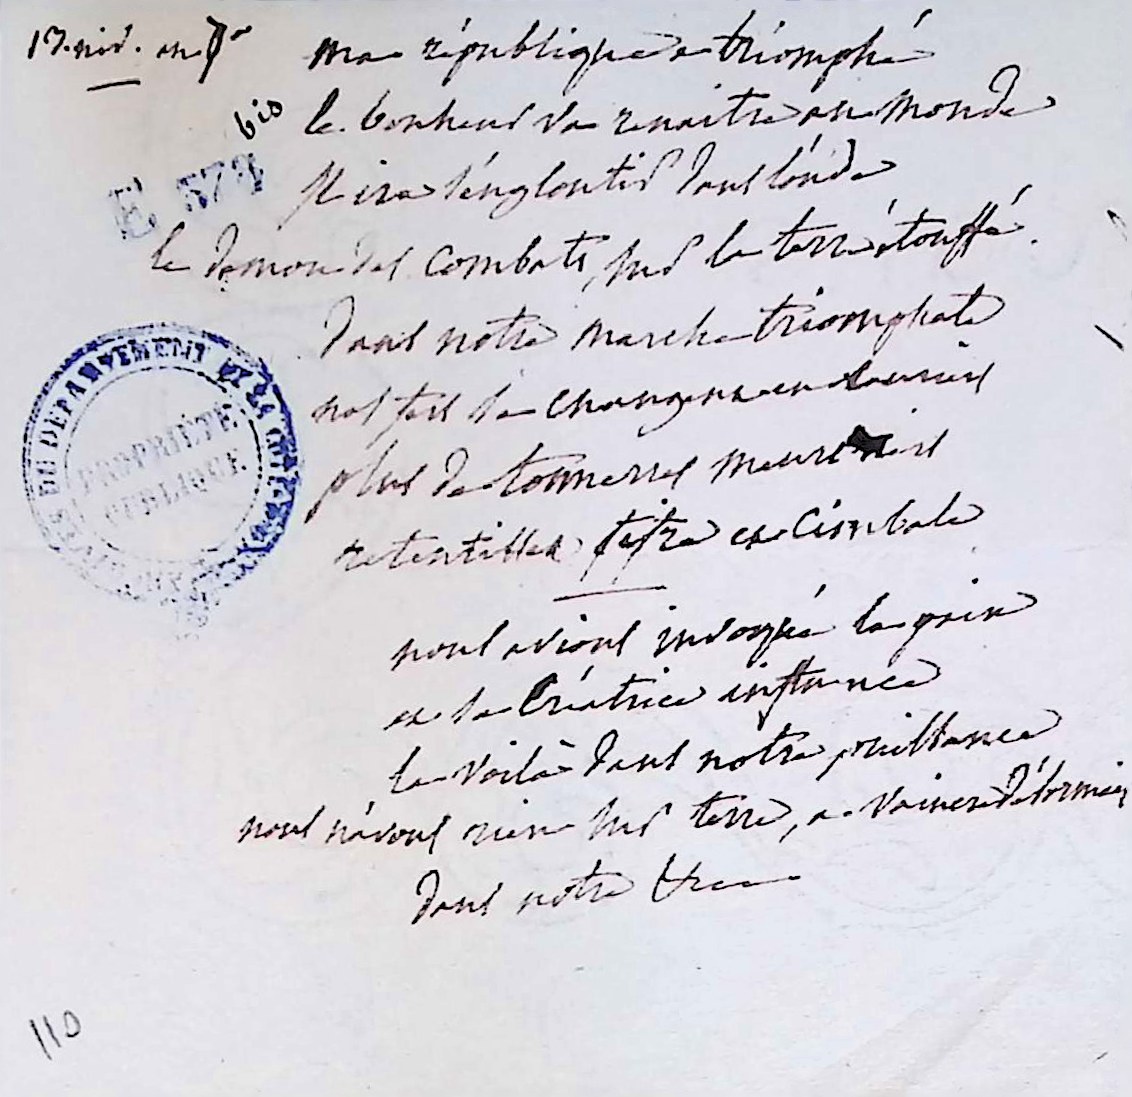 17. niv. an 7e
ma république a triomphé
bis
le bonheur va renaitre au monde
E 572
Il ira s'engloutir dans l'onde
le démon des combats, sur la terre étouffé.
dans notre marche triomphale
nos fers se changent en lauriers
plus de tonnerres meurtriers
retentissez fifre et cimbale
ARCHIVES DU DÉPARTEMENT DE LA CÔTE-D'OR
PROPRIÉTÉ
PUBLIQUE
nous avions invoqué la paix
et sa créatrice influence
la voilà dans notre puissance
nous n'avons rien sur terre, a vaincre désormais
dans notre
110